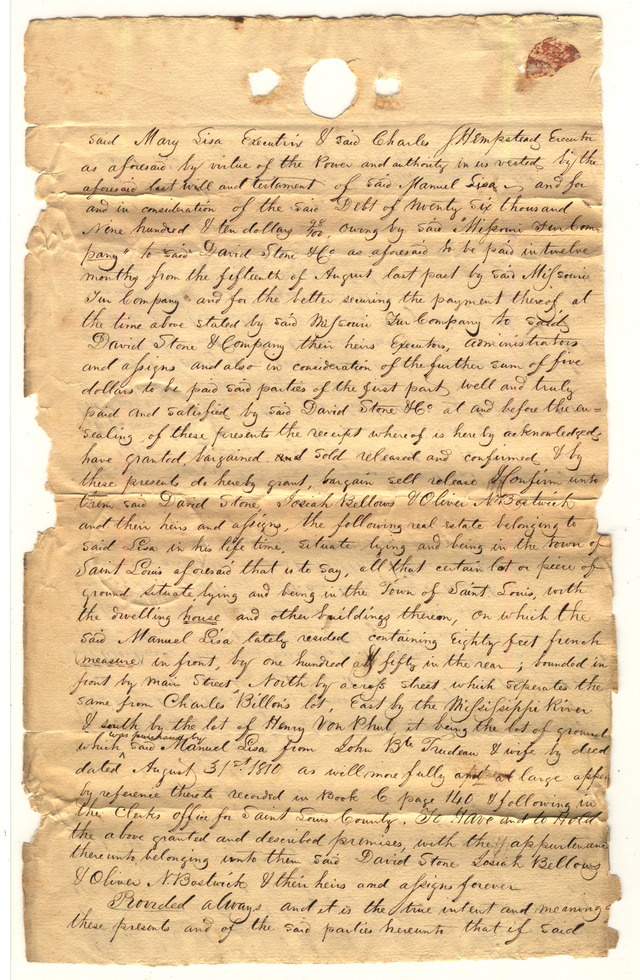 said Mary Lisa Executrix & said Charles S Hempstead Executor
as aforesaid by virtue of the Power and authority in us vested by the
aforesaid last will and testament of said Manuel Lisa, and for
and in consideration of the said Debt of Twenty Six thousand
Nine hundred & ten dollars owing by said "Missouri Fur Com=
pany" to said David Stone & Co as aforesaid to be paid in twelve
months from the fifteenth of August last past by said Missouri
Fur Company" and for the better securing the payment thereof at
the time above stated by said Missouri Fur Company to said
David Stone & Company their heirs Executors, administrators
and assigns and also in consideration of the further sum of five
dollars to be paid said parties of the first part well and truly
paid and satisfied by said David Stone & Co at and before the en=
sealing of these presents the receipt whereof is hereby acknowledged,
have granted, bargained and sold released and confirmed & by
these presents do hereby grant, bargain sell release & Confirm unto
them said David Stone, Josiah Bellows & Oliver N. Bostwick
and their heirs and assigns, the following real estate belonging to
said Lisa in his life time, situate lying and being in the town of
Saint Louis aforesaid that is to say, all that certain lot or piece of
ground situate lying and being in the Town of Saint Louis, with
the dwelling house and other buildings thereon, on which the
said Manuel Lisa lately resided containing Eighty feet french
measure in front, by one hundred & fifty in the rear; bounded in
front by main Street, North by a cross street which seperates the
same from Charles Billon's lot, East by the Mississippi River
& south by the lot of Henry Von Phul it being the lot of ground
which was purchased by said Manuel Lisa from John Bte Trudeau & wife by deed
dated August 31st 1810 as will more fully and at large appear
by reference thereto recorded in Book C page 140 & following in
the Clerks office for Saint Louis County. To Have and to Hold
the above granted and described premises, with the appurtenances
thereunto belonging unto them said David Stone Josiah Bellows
& Oliver N. Bostwick & their heirs and assigns forever
Provided always and it is the true intent and meaning
these presents and of the said parties hereunto that if said